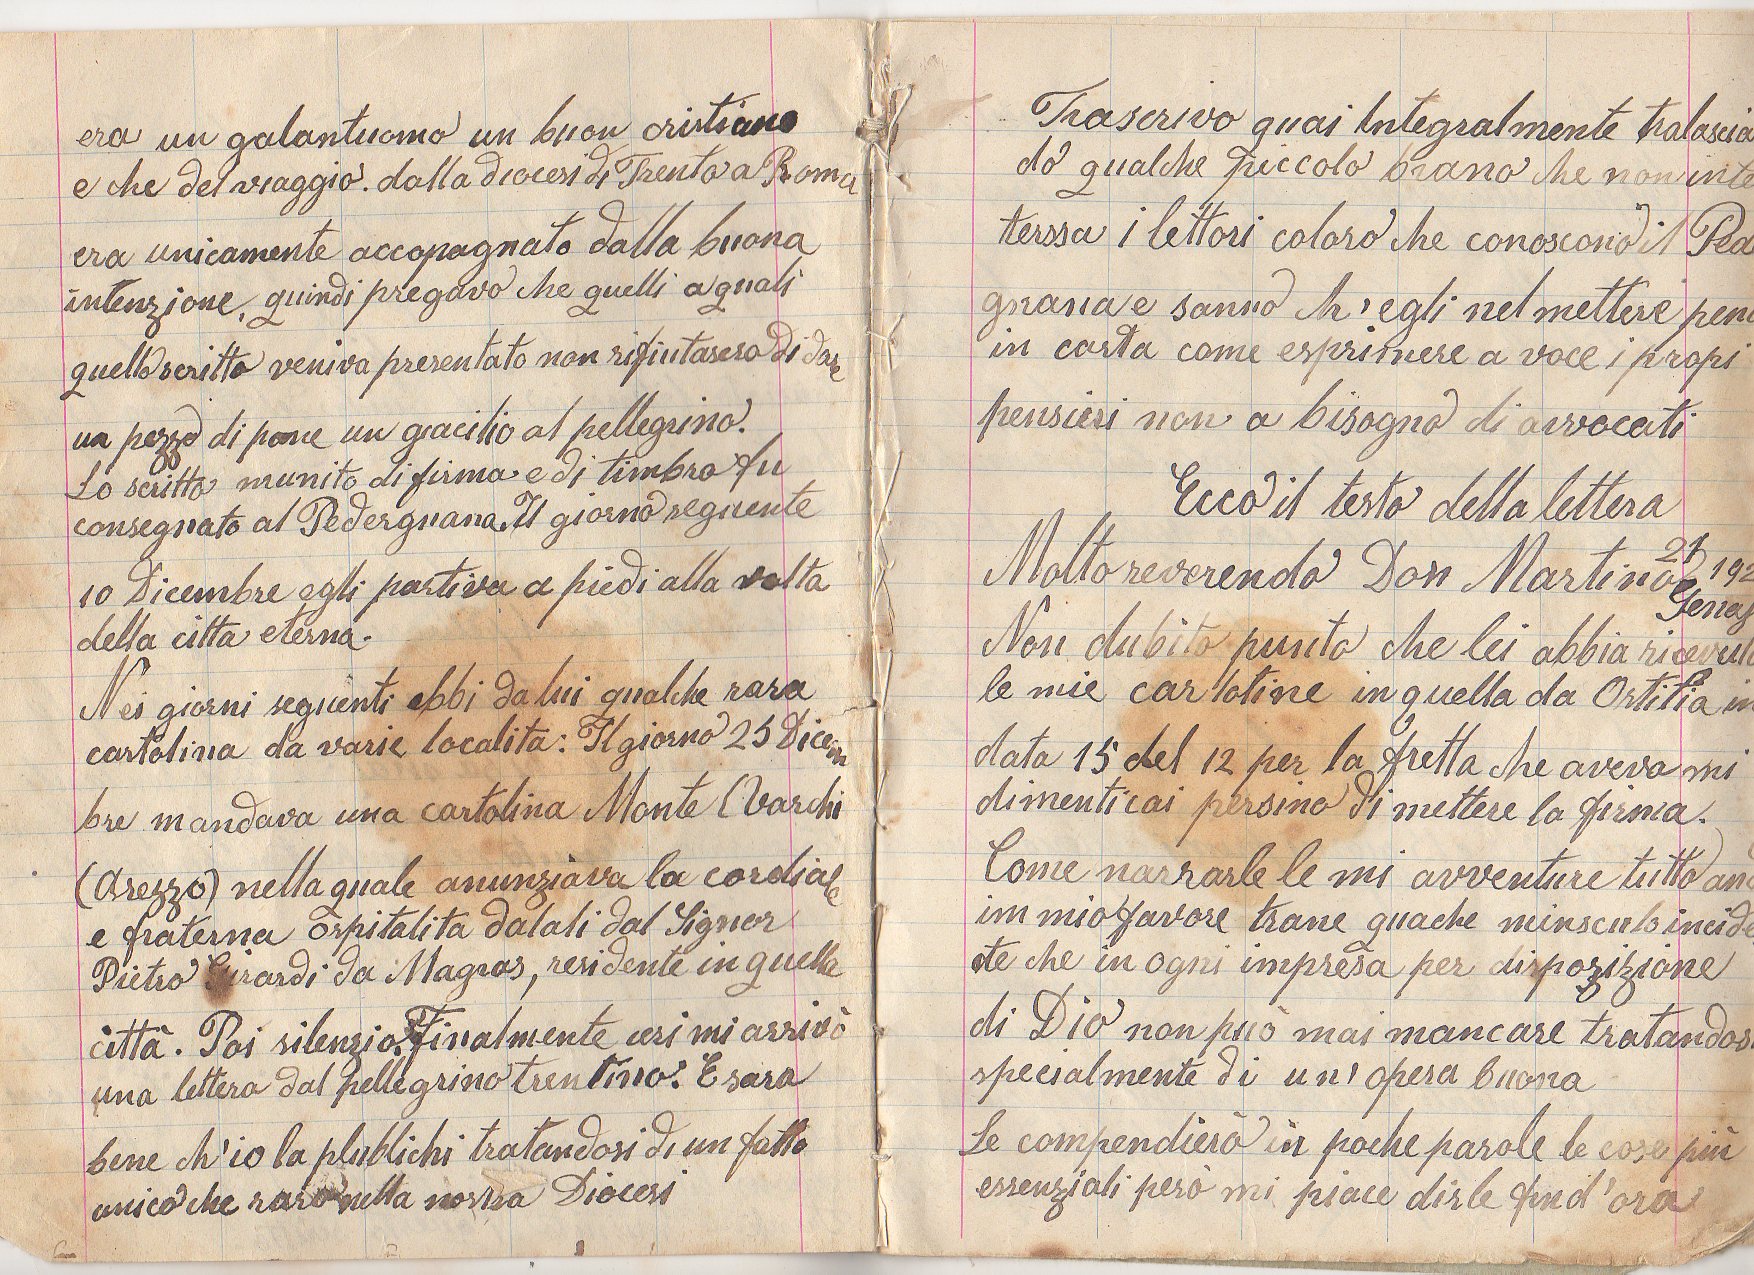 era un galantuomo un buon cristiano
e che del viaggio. dalla diocesi di Trento a Roma
era unicamente accopagnato dalla buona
intenzione, quindi pregavo che quelli a quali
quello scritto veniva presentato non rifiutasero di dare
un pezzo di pane un giacilio al pellegrino.
Lo scritto munito di firma e di timbro fu
consegnato al Pedergnana. Il giorno seguente
10 Dicembre egli partiva a piedi alla volta
della citta eterna.
Nei giorni seguenti ebbi da lui qualche rara
cartolina da varie localita: Il giorno 25 Dicem
bre mandava una cartolina Monte Varchi
(Arezzo) nella quale anunziava la cordiale
e fraterna ospitalita datali dal Signor
Pietro Girardi da Magras, residente in quella
città. Poi silenzio. Finalmente ieri mi arrivò
una lettera dal pellegrino trentino. E sara
bene ch'io la plublichi tratandosi di un fatto
unico che raro nella nostra Diocesi
Trascrivo quai Integralmente tralascia
do qualche piccolo brano che non inte
terssa i lettori coloro che conoscono il Peder
gnana e sanno ch'egli nel mettere pena
in carta come esprimere a voce i propi
pensieri non a bisogno di avvocati
Ecco il testo della lettera
Molto reverendo Don Martino 21 192
Non dubito punto che lei abbia ricevuto
le mie cartoline in quella da in
data 15 del 12 per la fretta che aveva mi
dimenticai persino di mettere la firma.
Come narrarle le mi avventure tutto and
im mio favore trane quache minsculo incide
te che in ogni impresa per disposizione
di Dio non può mai mancare tratandosi
specialmente di un' opera buona
Le compendierò in poche parole le cose più
essenziali però mi piace dirle find'ora